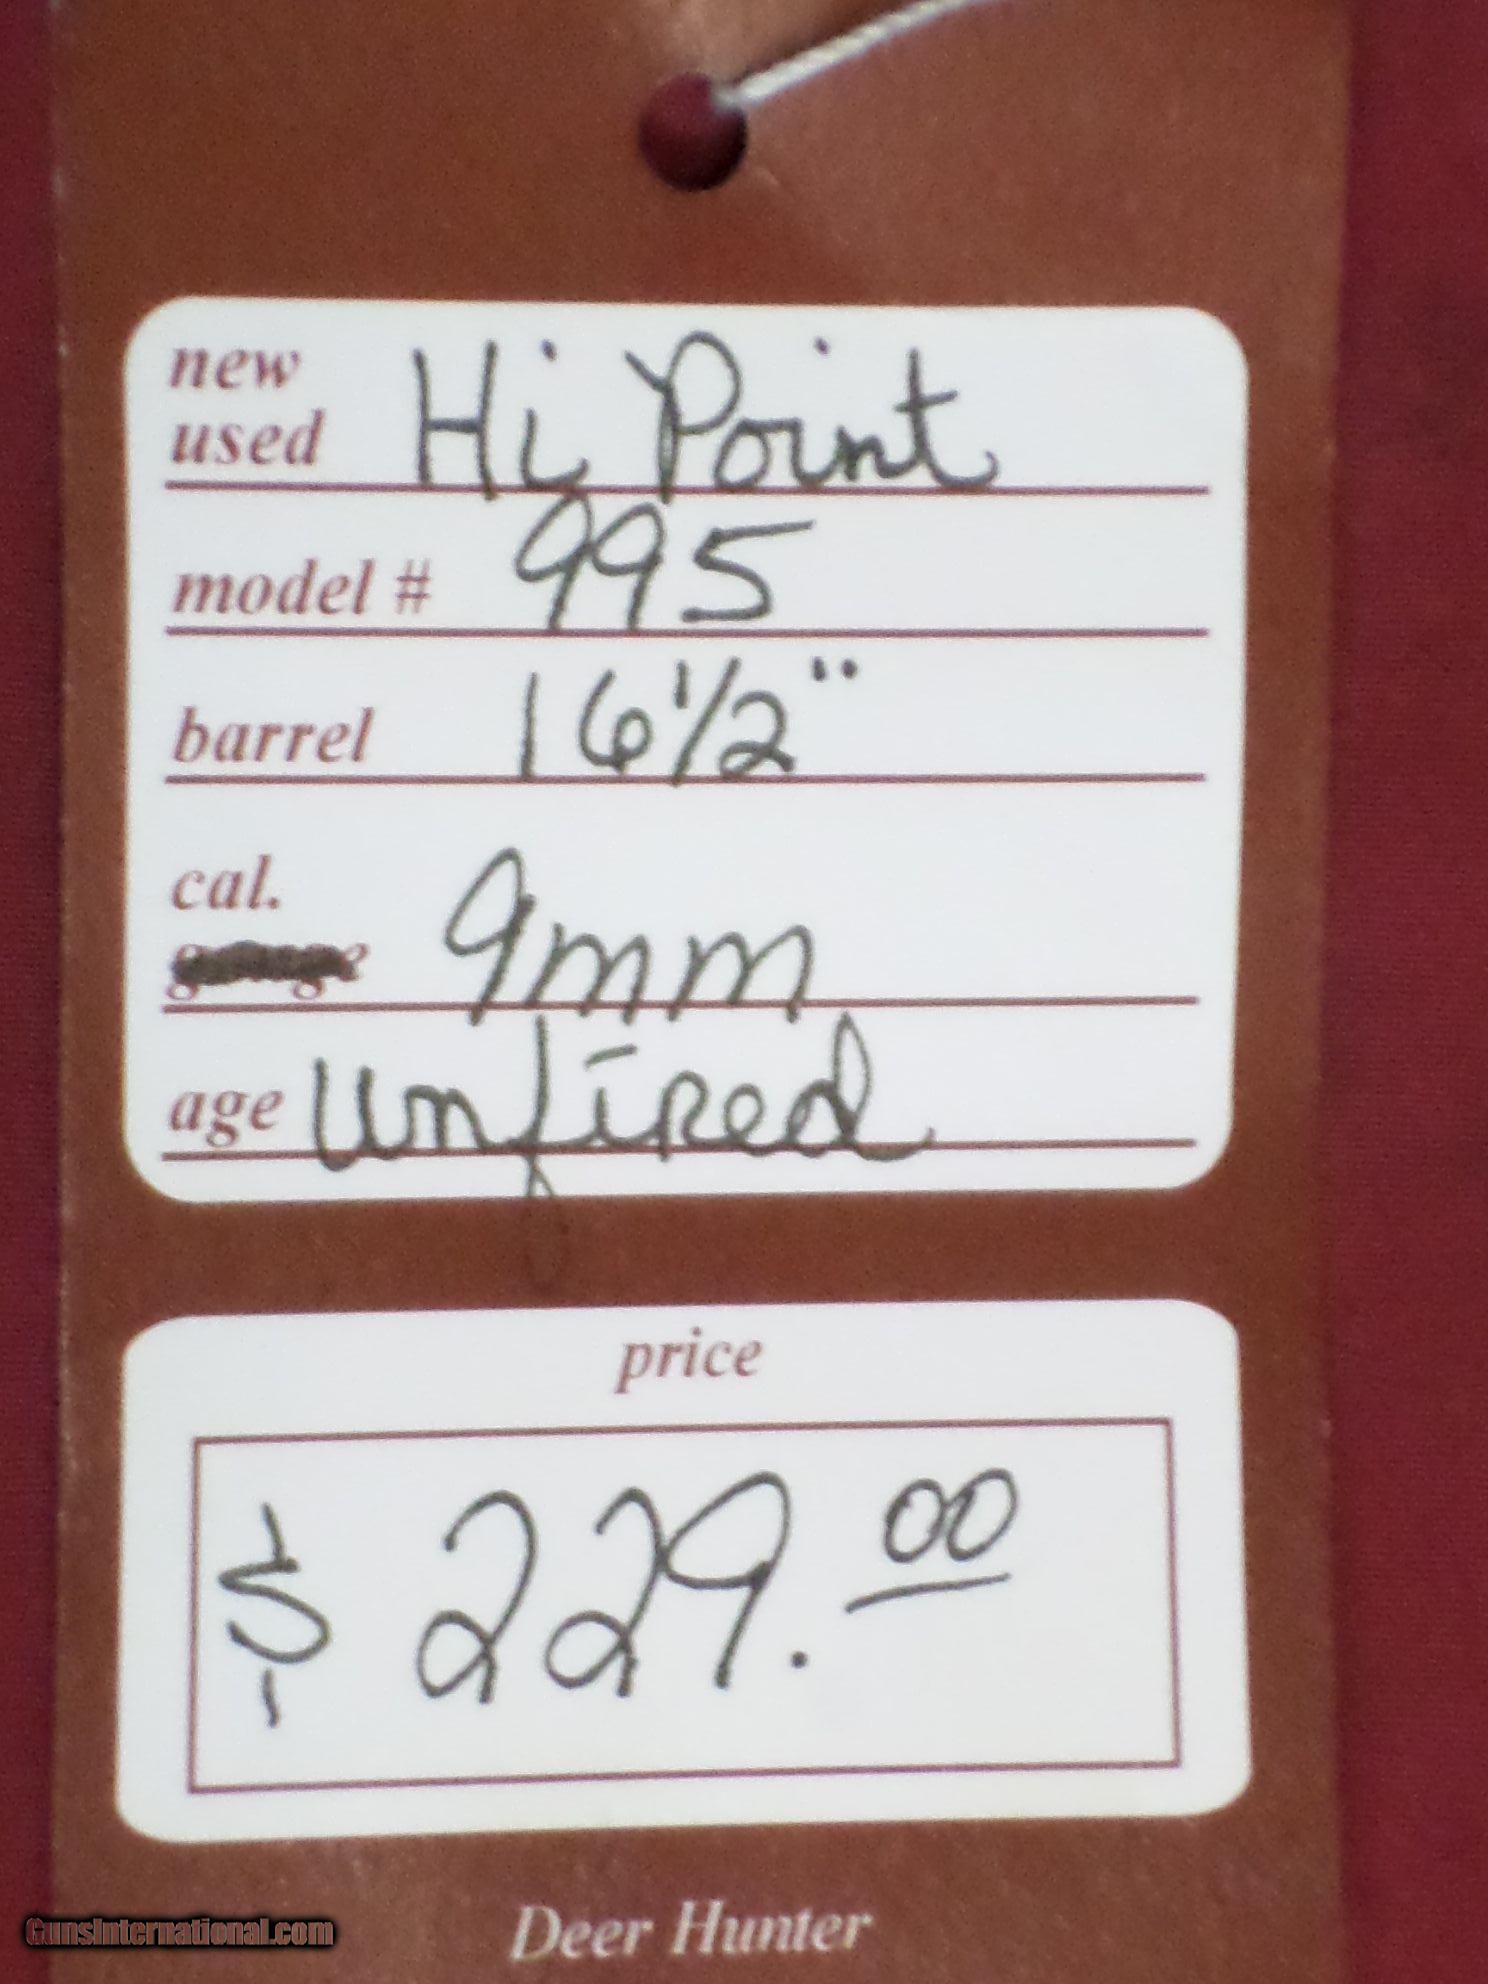 new
used Hi Point
model # 995
barrel 16 1/2"
cal.
gauge 9mm
age Unfired
price
$ 229.00
Deer Hunter
GunsInternational.com